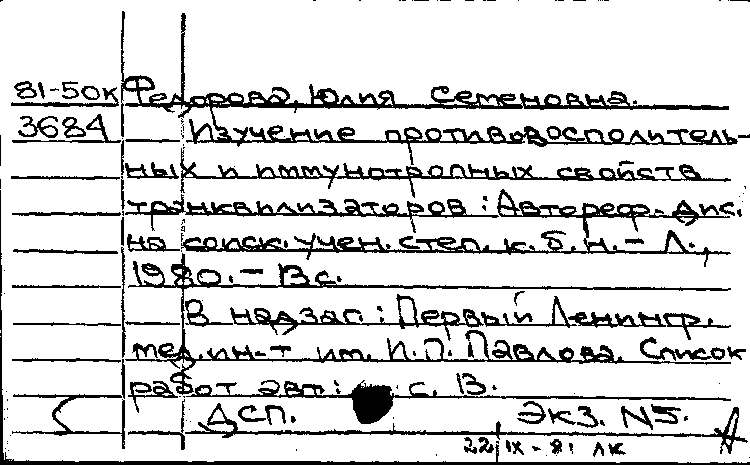 81-50к Федорова, Юлия Семеновна.
3684 Изучение противовосполитель-
ных и иммунотропных свойств
транквилизаторов : Автореф. дис.
на соиск. учен. степ. к. б. н. – Л.,
1980. – 13 с.
В надзаг. : Первый Ленингр.
мед. ин-т им. И. П. Павлова. Список
работ авт : с. 13.
ДСП. Экз. N5.
22 IX - 81 ЛК